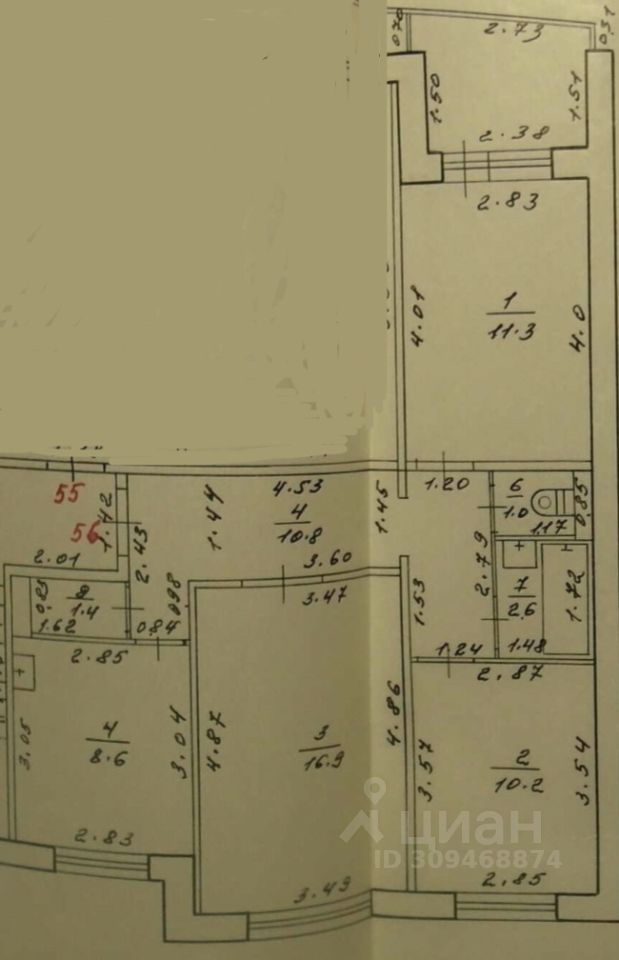 0.70
2.73
0.31
1.50
1.51
2.38
2.83
4.01
1
11.3
4.0
55
56
1.42
2.01
2.43
1.44
4.53
4
10.8
3.60
1.45
1.20
6
1.0
1.17
0.85
2.79
7
2.6
1.72
1.48
1.53
1.24
1.4
1.62
0.98
0.84
3.47
2.85
3.05
4
8.6
3.04
2.83
4.87
3
16.9
4.86
3.49
2.87
3.57
2
10.2
3.54
2.85
циан
ID 309468874